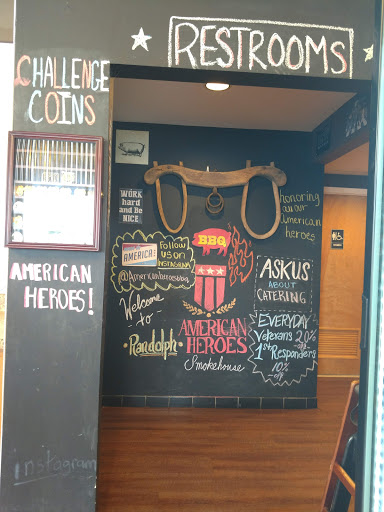 RESTROOMS
CHALLENGE
COINS
AMERICAN
HEROES!
instagram
WORK
hard
and Be
NICE
honoring
our
American
heroes
AMERICA
Follow
us on
INSTAGRAM
BBQ
Welcome
-to-
Randolph
AMERICAN
HEROES
Smokehouse
ASK US
ABOUT
CATERING
EVERYDAY
Veterans 20%
-off-
1st Responders
10%
-off-